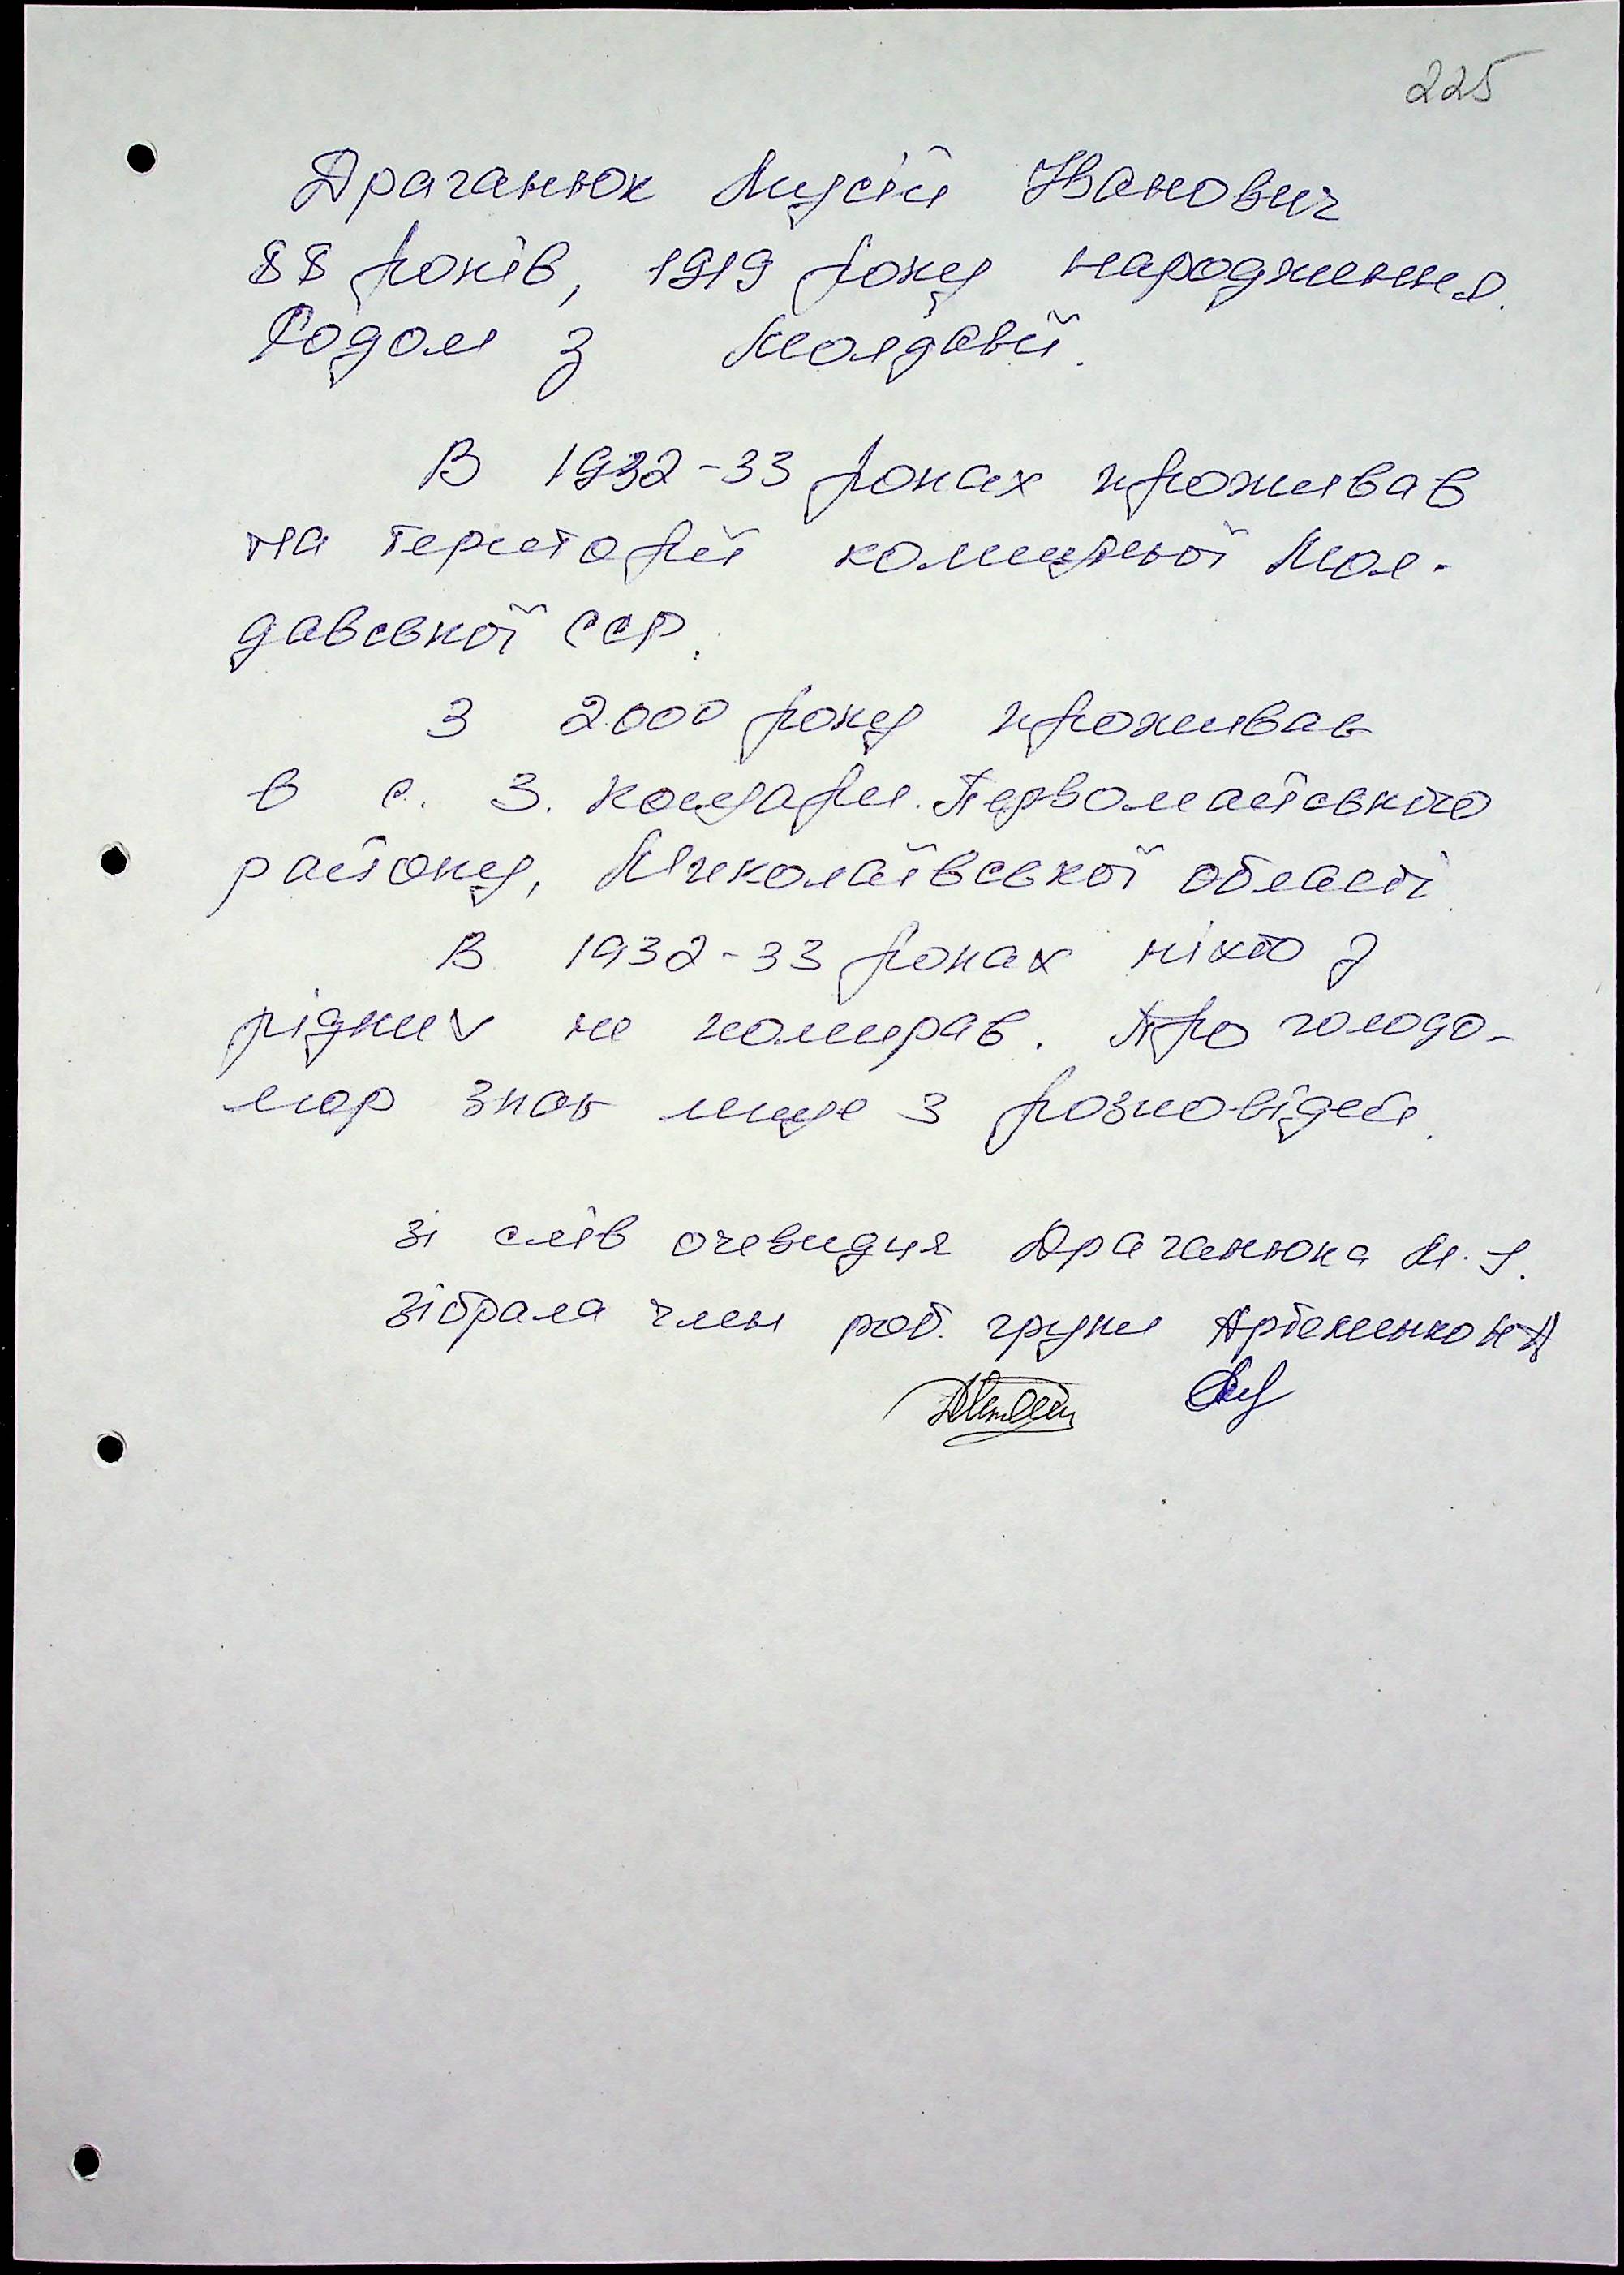 225
Драганюк Мусій Іванович
88 років, 1919 року народження.
Родом з Молдавії.
В 1932-33 роках проживав
на території колишньої Мол-
давської ССР.
З 2000 року проживав
в с. З. Кошари. Первомайського
району, Миколаївської області.
В 1932-33 роках ніхто з
рідних не помирав. Про голодо-
мор знав лише з розповідей.
Зі слів очевидця Драганюка М. І.
зібрала член роб. групи Артеменко Н А